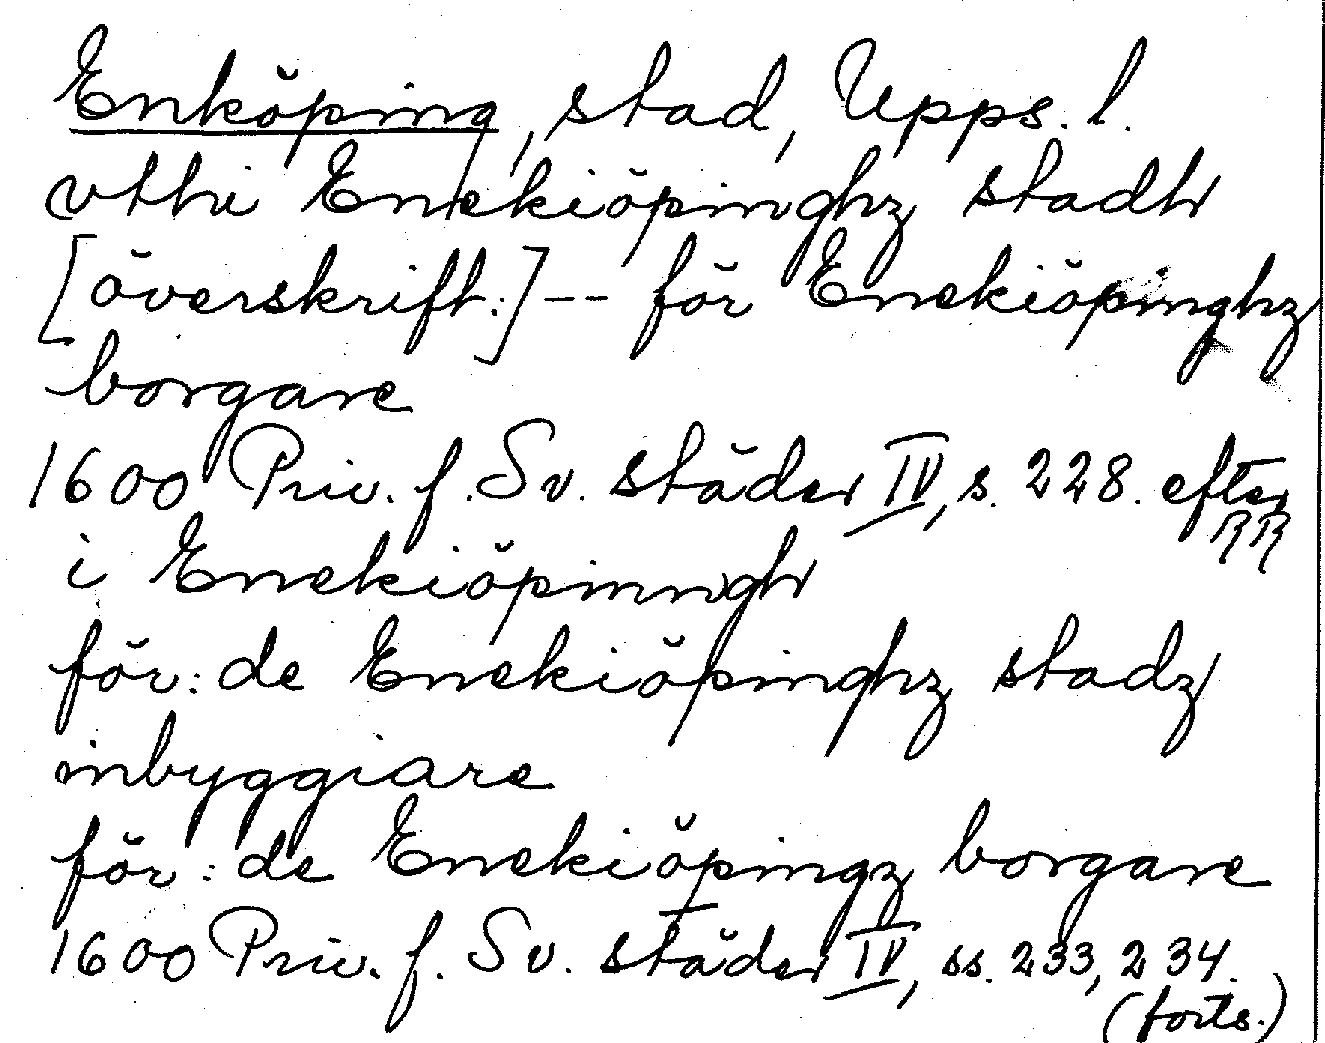 Enköping, stad, Upps. l.
vthi Enekiöpinghz stadh
[överskift:] -- för Enekiöpinghz
borgare
1600 Priv. f. Sv. städer IV, s. 228. efter
RR
i Enekiöpinngh
för: de Enekiöpinghz stadz
inbyggiare
för: de Enekiöpingz borgare
1600 Priv. f. Sv. städer IV, ss. 233, 234.
(forts.)